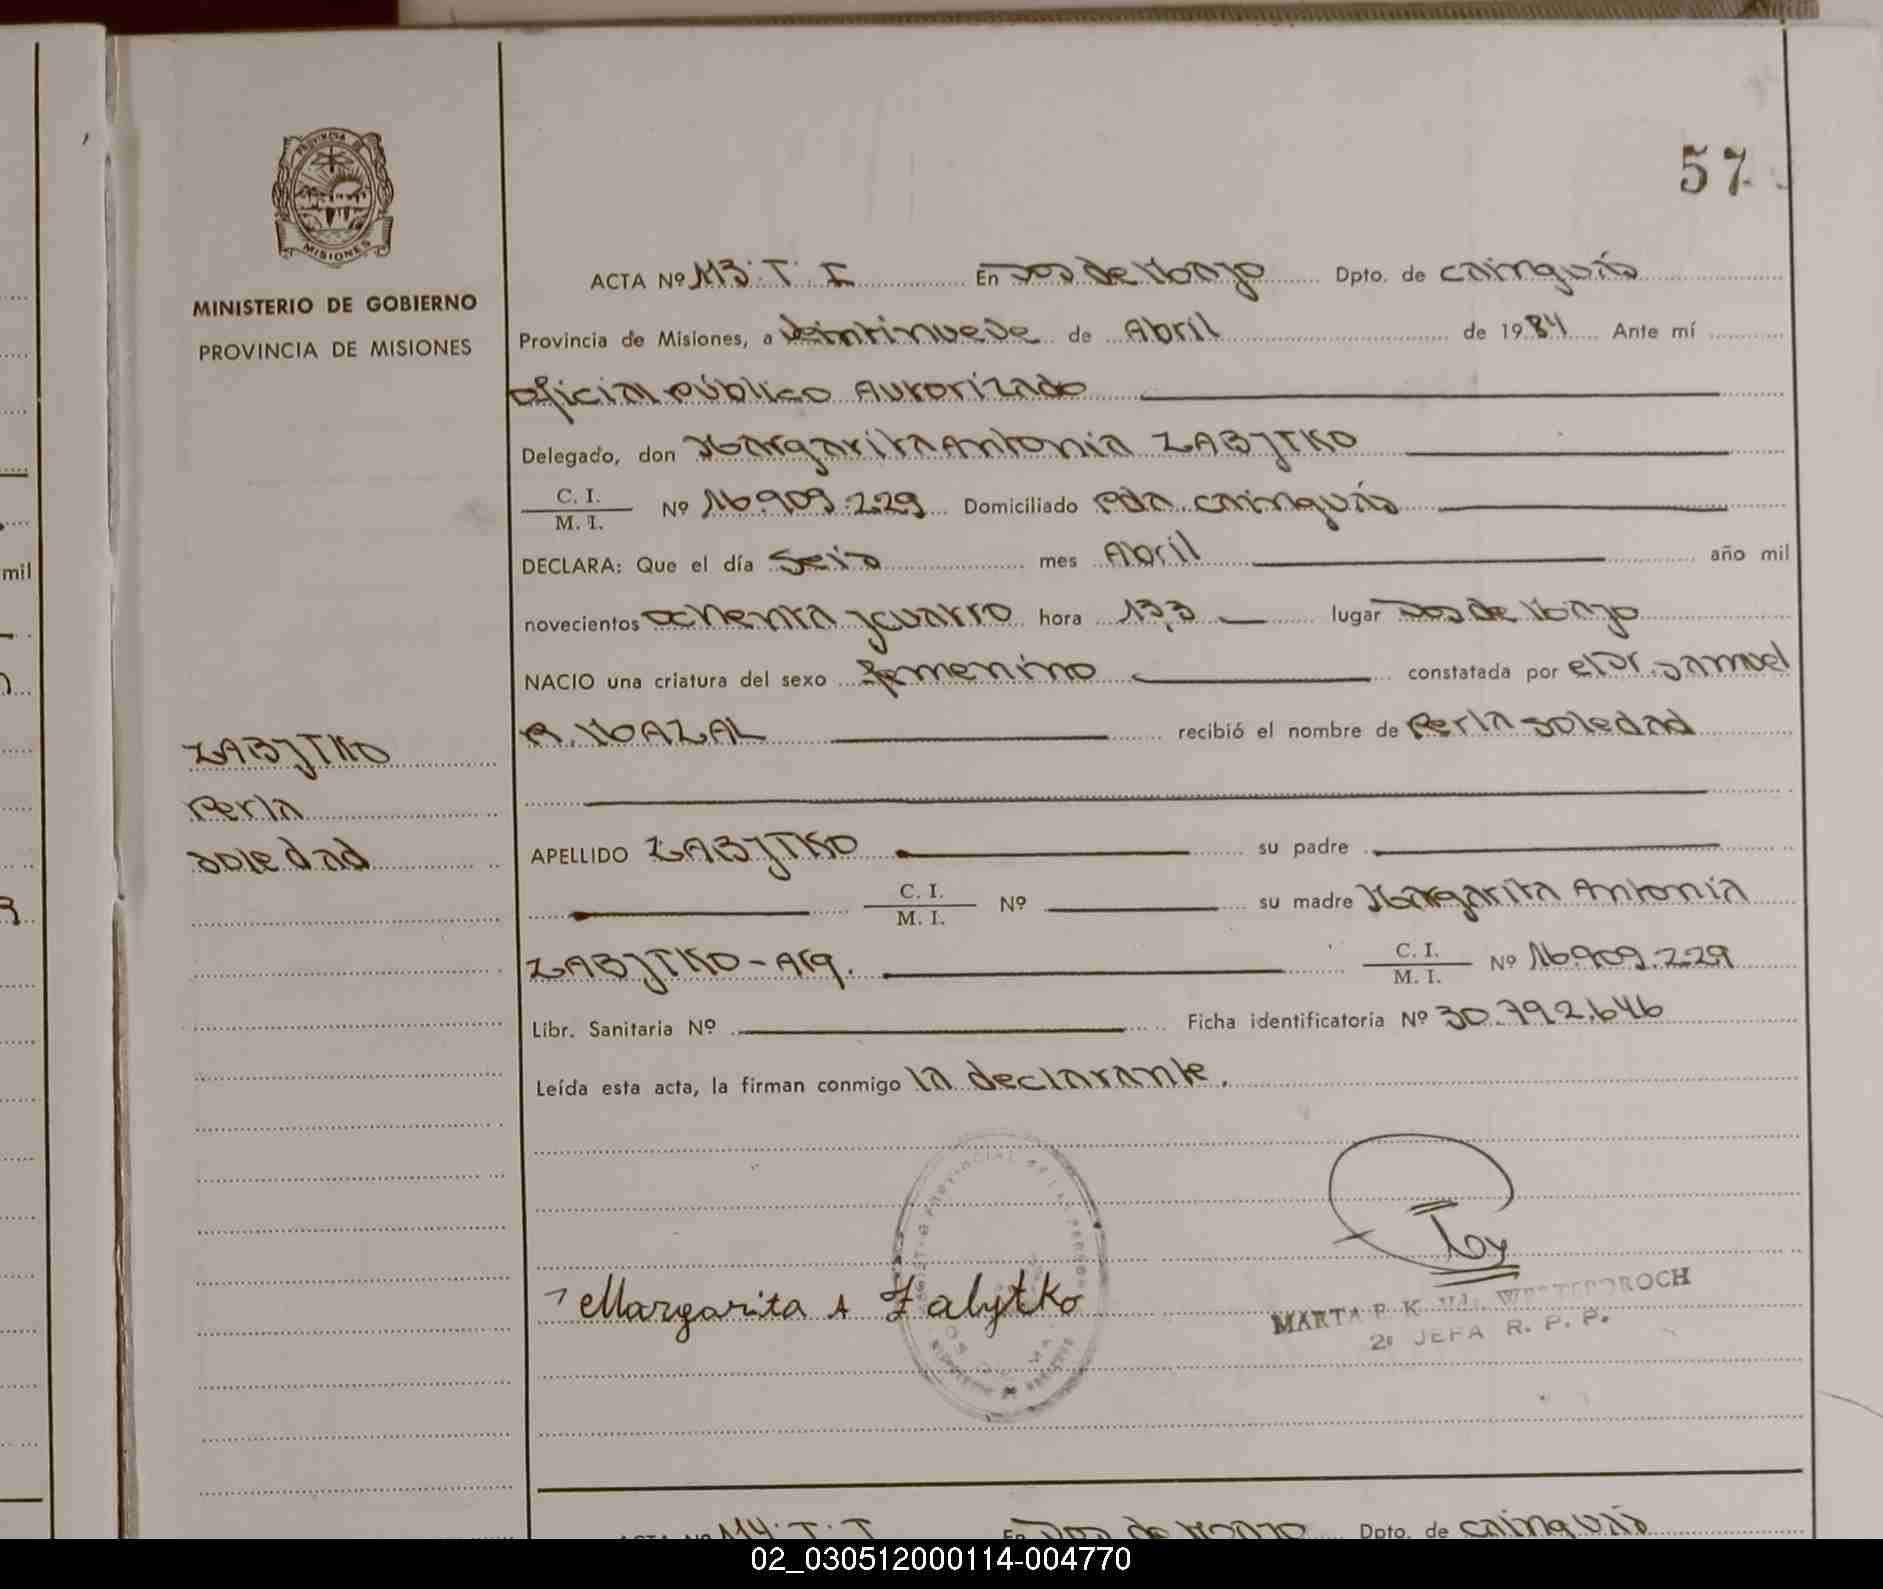 57
PROVINCIA DE
MISIONES
MINISTERIO DE GOBIERNO
PROVINCIA DE MISIONES
ACTA Nº 113. T. I En Dos de Mayo Dpto. de Cainguás
Provincia de Misiones, a Veintinueve de Abril de 1984 Ante mí
Oficial Público Autorizado
Delegado, don Margarita Antonia ZABYTKO
C. I.
M. I. Nº 16.909.229 Domiciliado Pda. Cainguás
DECLARA: Que el día Seis mes Abril año mil
novecientos ochenta y cuatro hora 13,3 lugar Dos de Mayo
NACIO una criatura del sexo femenino constatada por el Dr. Samuel
A. MAZAL recibió el nombre de Perla Soledad
ZABYTKO
Perla
Soledad
APELLIDO ZABYTKO su padre
C. I.
M. I. Nº su madre Margarita Antonia
ZABYTKO - Arg. C. I.
M. I. Nº 16.909.229
Libr. Sanitaria Nº Ficha identificatoria Nº 30.792.646
Leída esta acta, la firman conmigo la declarante.
Margarita A Zabytko
MARTA K. Vda.
2ª JEFA R. P. P.
ACTA Nº 114. T. I En Dos de Mayo Dpto. de Cainguás
mil
02_030512000114-004770